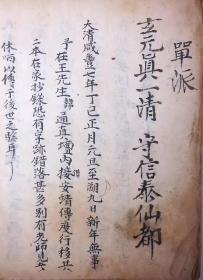 單派
玄元真一清 守信泰仙都
大清咸豐七年丁巳正月元旦至湖九日新年無事
予在王先生 通真壇內接安靖傳度行移共
二本在家抄錄恐有字跡錯落甚多別有老師見
休哂以傳于後世之驗耳